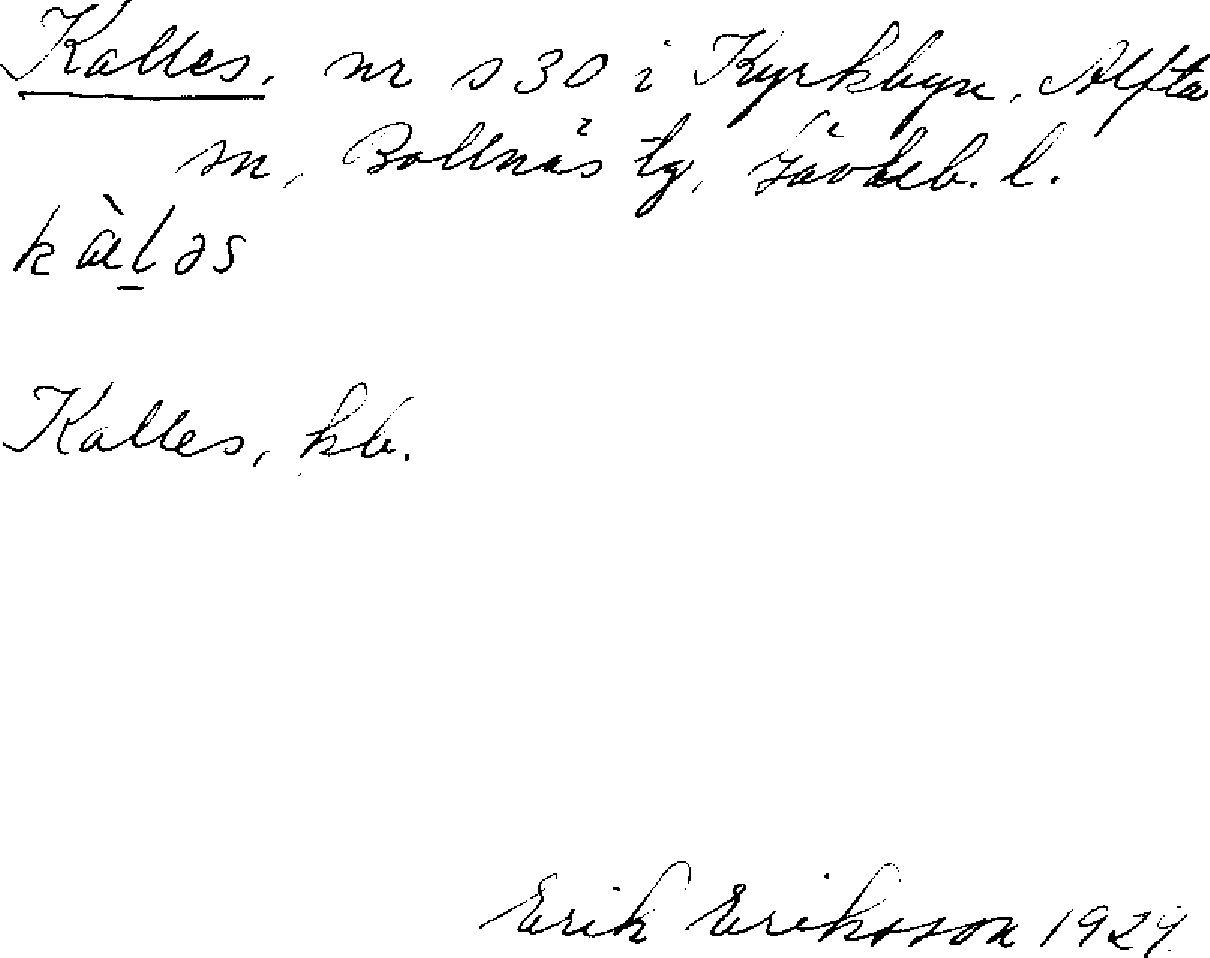 Kalles, nr s 30 i Kyrkbyn, Alfta
sn, Bollnäs tg, Gävleb. l.
kàl̠əs
Kalles, kb.
Erik Eriksson 1927.